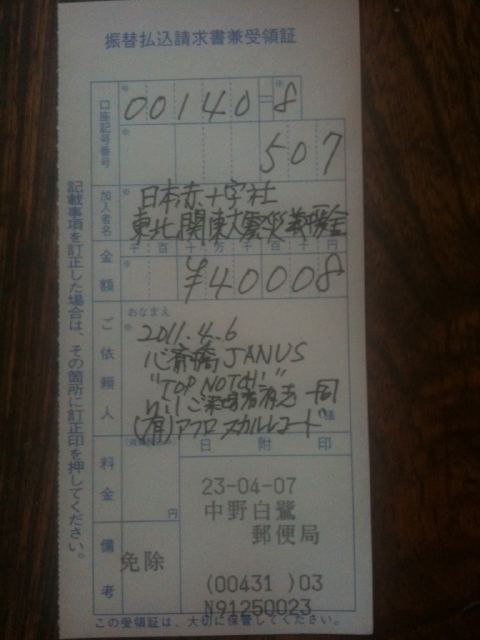 振替払込請求書兼受領証
口座記号番号
00140-8
507
加入者名
日本赤十字社
東北関東大震災義援金
金額
千百十万千百十円
¥40008
ご依頼人
おなまえ
2011.4.6
心斎橋JANUS
"TOP NOTCH"
ご来場者有志一同
様
(有)アフロスカルレコード
料金
円
日附印
23-04-07
中野白鷺
郵便局
(00431 )03
N91250023
備考
免除
記載事項を訂正した場合は、その箇所に訂正印を押してください。
この受領証は、大切に保管してください。